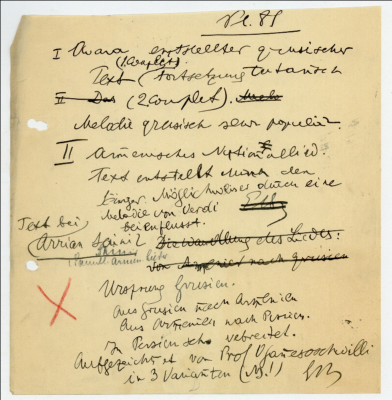 Pl. 88
I Awara entstellter grusischer
Text (1. Couplet). Fortsetzung tatarisch
II Das (2 Couplet).
Melodie grusisch sehr populär.
II Armenisches Nationallied.
Text entstellt durch den
Sänger. Möglicherweise durch eine
Melodie von Verdi
beeinflusst.
Text bei
Die Wandlung des Liedes:
von Armenien nach Grusien
Ursprung Grusien.
Aus Grusien nach Armenien
Aus Armenien nach Persien.
In Persien sehr verbreitet.
Aufgezeichnet von Prof.
in 3 Varianten (No!)